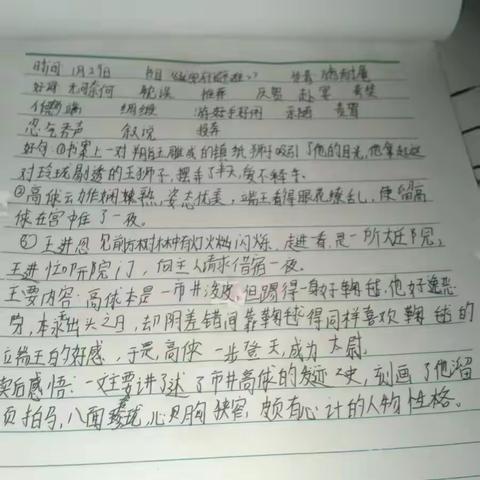 时间 1月29日 书目《水浒传
好词 无可奈何 耽误 推荐 反贺 赴宴
作对 缠绵 游好手好闲 亲随 责罚
忍气吞声 叙说 推荐
好句:①书案上一对羊脂玉雕成的镇纸狮子吸引了他的目光,他拿起这
对玲珑剔透的玉狮子,摆弄了半天,爱不释手。
②高俅云力作娴熟,姿态优美,端王看得眼花缭乱,便留高
俅在宫中住了一夜。
③王进忽见前方树林中有灯火微微闪烁,走进一看,是一所大庄院,
王进忙叩院门,向主人请求借宿一夜。
主要内容:高俅本是一市井泼皮,但踢得一身好鞠毬,他好逸恶
劳,本乘出头之日,却阴差错间靠鞠毬得同样喜欢鞠毬的
端王的好感,于是,高俅一步登天,成为太尉。
读后感悟:一文主要讲了述了市井高俅的发迹之史,刻画了他溜
须拍马,八面玲珑,心胸狭窄,颇有心计的人物性格。